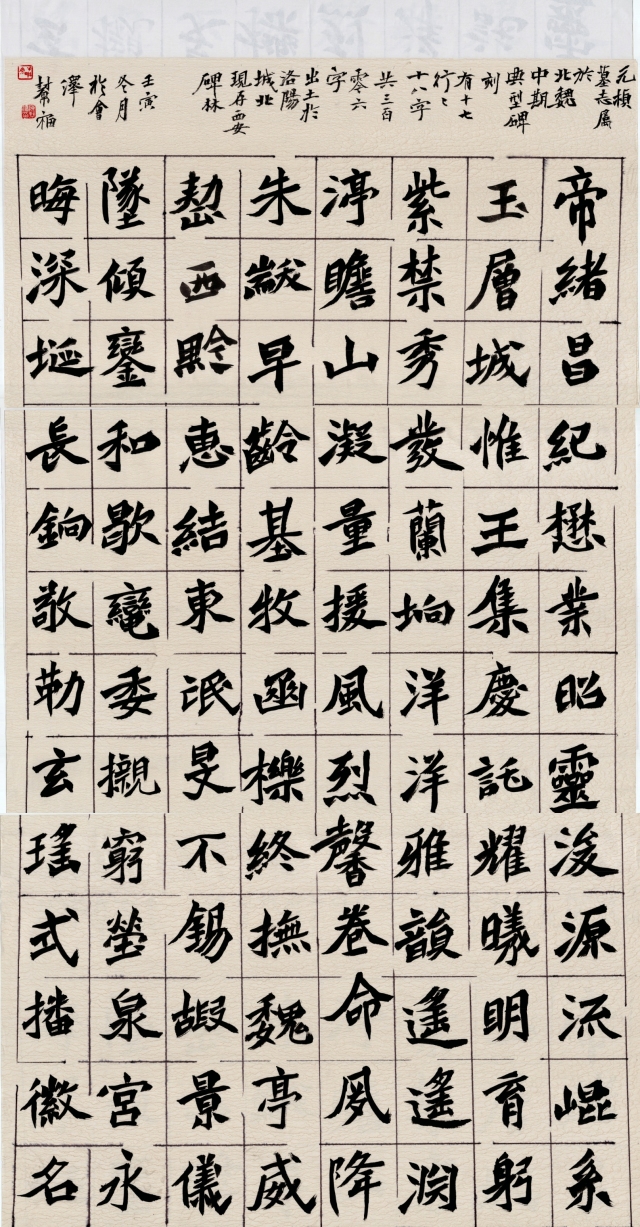 元楨
墓志属
於
北魏
中期
典型碑
刻
有十七
行行
十八字
共三百
零六
字
出土於
洛陽
城北
現存西安
碑林
壬寅
冬月
於會
澤
幫福
帝緒昌紀懋業昭靈浚源流崐系
玉層城惟王集慶託耀曦明育躬
紫禁秀發蘭坰洋洋雅韻遙遙淵
渟瞻山凝量援風烈馨卷命夙降
朱黻早齡基牧函櫟終撫魏亭威
西黔惠結東氓旻不錫嘏景儀
墜傾鑾和歇委櫬窮塋泉宮永
晦深埏長敬勒玄瑤式播徽名